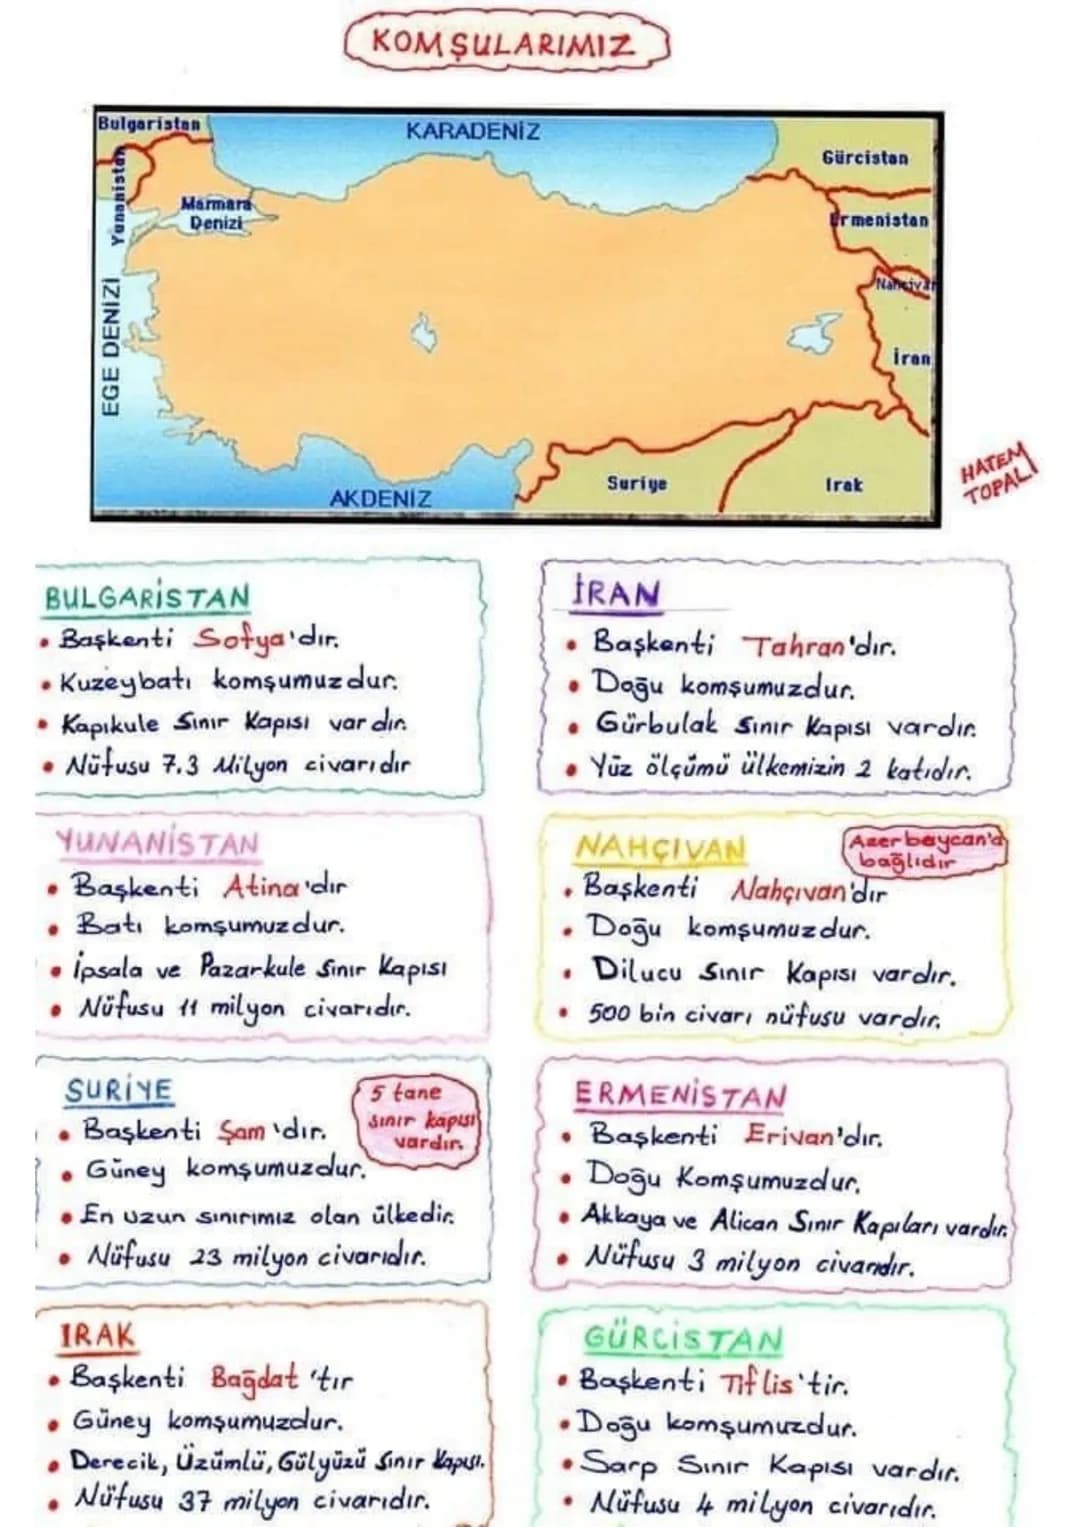 KOMŞULARIMIZ
Bulgaristan
KARADENİZ
Gürcistan
Yunanistan
Marmara
Denizi
Ermenistan
Nahcivan
EGE DENİZİ
İran
Suriye
Irak
AKDENİZ
HATEM
TOPAL
BULGARİSTAN
• Başkenti Sofya'dır.
• Kuzeybatı komşumuzdur.
• Kapıkule Sınır Kapısı vardır.
• Nüfusu 7.3 Milyon civarıdır
İRAN
• Başkenti Tahran'dır.
• Doğu komşumuzdur.
• Gürbulak Sınır Kapısı vardır.
• Yüz ölçümü ülkemizin 2 katıdır.
YUNANİSTAN
• Başkenti Atina'dır
• Batı komşumuzdur.
• İpsala ve Pazarkule Sınır Kapısı
• Nüfusu 11 milyon civarıdır.
NAHÇIVAN
Azerbaycan'a
bağlıdır
• Başkenti Nahçıvan'dır
• Doğu komşumuzdur.
• Dilucu Sınır Kapısı vardır.
• 500 bin civarı nüfusu vardır.
SURİYE
5 tane
sınır kapısı
vardır.
• Başkenti Şam'dır.
• Güney komşumuzdur.
• En uzun sınırımız olan ülkedir.
• Nüfusu 23 milyon civarıdır.
ERMENİSTAN
• Başkenti Erivan'dır.
• Doğu Komşumuzdur.
• Akkaya ve Alican Sınır Kapıları vardır.
• Nüfusu 3 milyon civarıdır.
IRAK
• Başkenti Bağdat'tır
• Güney komşumuzdur.
• Derecik, Üzümlü, Gülyüzü Sınır Kapısı.
• Nüfusu 37 milyon civarıdır.
GÜRCİSTAN
• Başkenti Tiflis'tir.
• Doğu komşumuzdur.
• Sarp Sınır Kapısı vardır.
• Nüfusu 4 milyon civarıdır.